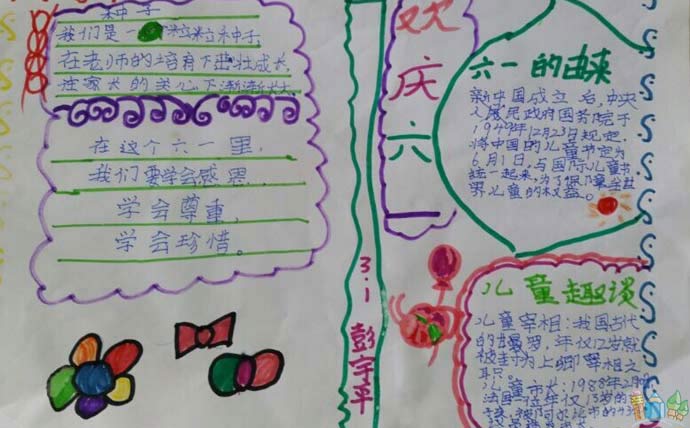 种子
我们是一粒粒种子,
在老师的培育下茁壮成长,
在家长的关心下渐渐长大
在这个六一里,
我们要学会感恩.
学会尊重,
学会珍惜。
欢庆六一
3.1 彭宇平
六一的由来
新中国成立后,中央
人民政府国务院于
1949年12月23日规定,
将中国的儿童节定为
6月1日,与国际儿童节
统一起来,为了保障全世
界儿童的权益。
儿童趣谈
儿童宰相:我国古代
的甘罗,年仅12岁就
被封为上卿宰相之
职
儿童市长:1988年2月
法国一位年仅13岁的